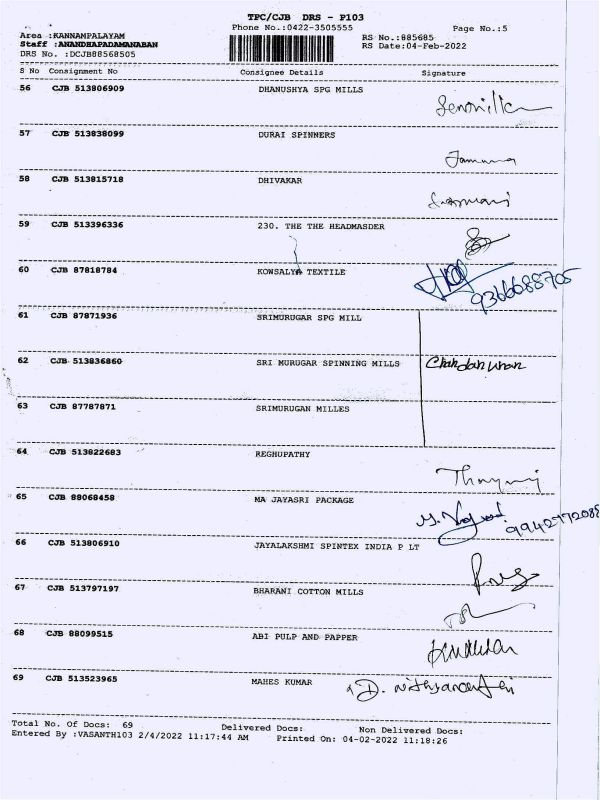 TPC/CJB DRS - P103
Phone No.:0422-3505555
Page No.:5
Area :KANNAMPALAYAM
RS No.:885685
Staff :ANANDHAPADAMANABAN
RS Date:04-Feb-2022
DRS No. :DCJB88568505
S No Consignment No Consignee Details Signature
56 CJB 513806909 DHANUSHYA SPG MILLS
57 CJB 513838099 DURAI SPINNERS
Jamuna
58 CJB 513815718 DHIVAKAR
59 CJB 513396336 230. THE THE HEADMASDER
60 CJB 87818784 KOWSALYA TEXTILE
9366688705
61 CJB 87871936 SRIMURUGAR SPG MILL
62 CJB 513836860 SRI MURUGAR SPINNING MILLS
63 CJB 87787871 SRIMURUGAN MILLES
64 CJB 513822683 REGHUPATHY
65 CJB 88068458 MA JAYASRI PACKAGE
66 CJB 513806910 JAYALAKSHMI SPINTEX INDIA P LT
67 CJB 513797197 BHARANI COTTON MILLS
68 CJB 88099515 ABI PULP AND PAPPER
69 CJB 513523965 MAHES KUMAR
Total No. Of Docs: 69 Delivered Docs: Non Delivered Docs:
Entered By :VASANTH103 2/4/2022 11:17:44 AM Printed On: 04-02-2022 11:18:26